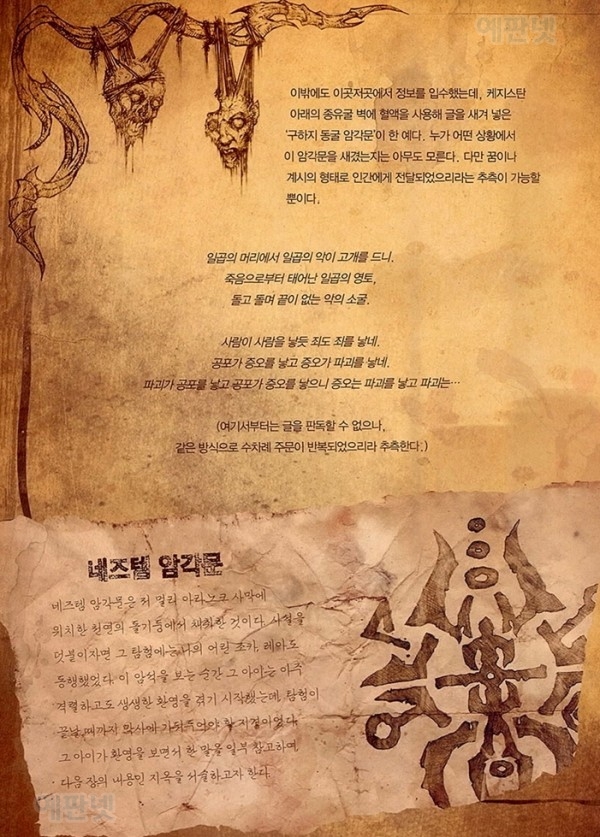 예판넷
이밖에도 이곳저곳에서 정보를 입수했는데, 케지스탄
아래의 종유굴 벽에 혈액을 사용해 글을 새겨 넣은
'구하지 동굴 암각문'이 한 예다. 누가 어떤 상황에서
이 암각문을 새겼는지는 아무도 모른다. 다만 꿈이나
계시의 형태로 인간에게 전달되었으리라는 추측이 가능할
뿐이다.
일곱의 머리에서 일곱의 악이 고개를 드니,
죽음으로부터 태어난 일곱의 영토,
돌고 돌며 끝이 없는 악의 소굴.
사람이 사람을 낳듯 죄도 죄를 낳네.
공포가 증오를 낳고 증오가 파괴를 낳네.
파괴가 공포를 낳고 공포가 증오를 낳으니 증오는 파괴를 낳고 파괴는…
(여기서부터는 글을 판독할 수 없으나,
같은 방식으로 수차례 주문이 반복되었으리라 추측한다.)
네즈템 암각문
네즈템 암각문은 저 멀리 아라노크 사막에
위치한 환연의 돌기둥에서 채취한 것이다. 사실을
덧붙이자면 그 탐험에는 나의 어린 조카, 레아도
동행했었다. 이 암석을 보는 순간 그 아이는 아주
격렬하고도 생생한 환영을 겪기 시작했는데, 탐험이
끝날 때까지 막사에 가둬두어야 할 지경이었다.
그 아이가 환영을 보면서 한 말을 일부 참고하며,
다음 장의 내용인 지옥을 서술하고자 한다.
예판넷